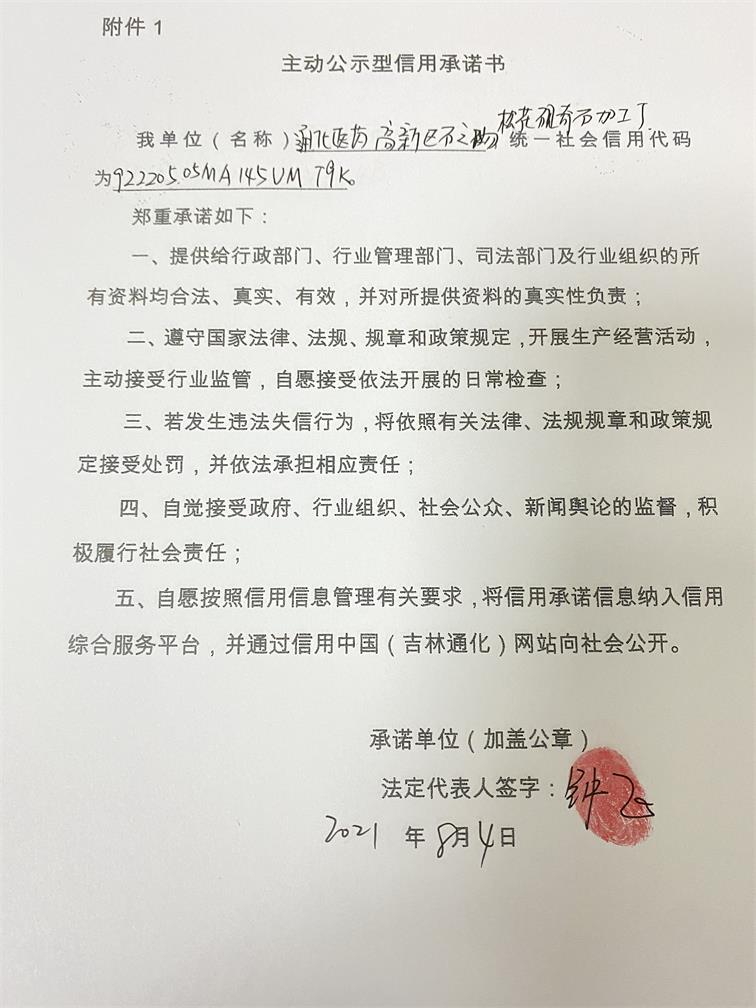 附件1
主动公示型信用承诺书
我单位（名称）通化医药高新区石之韵松花砚奇石加工厂统一社会信用代码
为92220505MA145UMT9K。
郑重承诺如下：
一、提供给行政部门、行业管理部门、司法部门及行业组织的所
有资料均合法、真实、有效，并对所提供资料的真实性负责；
二、遵守国家法律、法规、规章和政策规定，开展生产经营活动，
主动接受行业监管，自愿接受依法开展的日常检查；
三、若发生违法失信行为，将依照有关法律、法规规章和政策规
定接受处罚，并依法承担相应责任；
四、自觉接受政府、行业组织、社会公众、新闻舆论的监督，积
极履行社会责任；
五、自愿按照信用信息管理有关要求，将信用承诺信息纳入信用
综合服务平台，并通过信用中国（吉林通化）网站向社会公开。
承诺单位（加盖公章）
法定代表人签字：钟飞
2021年8月4日